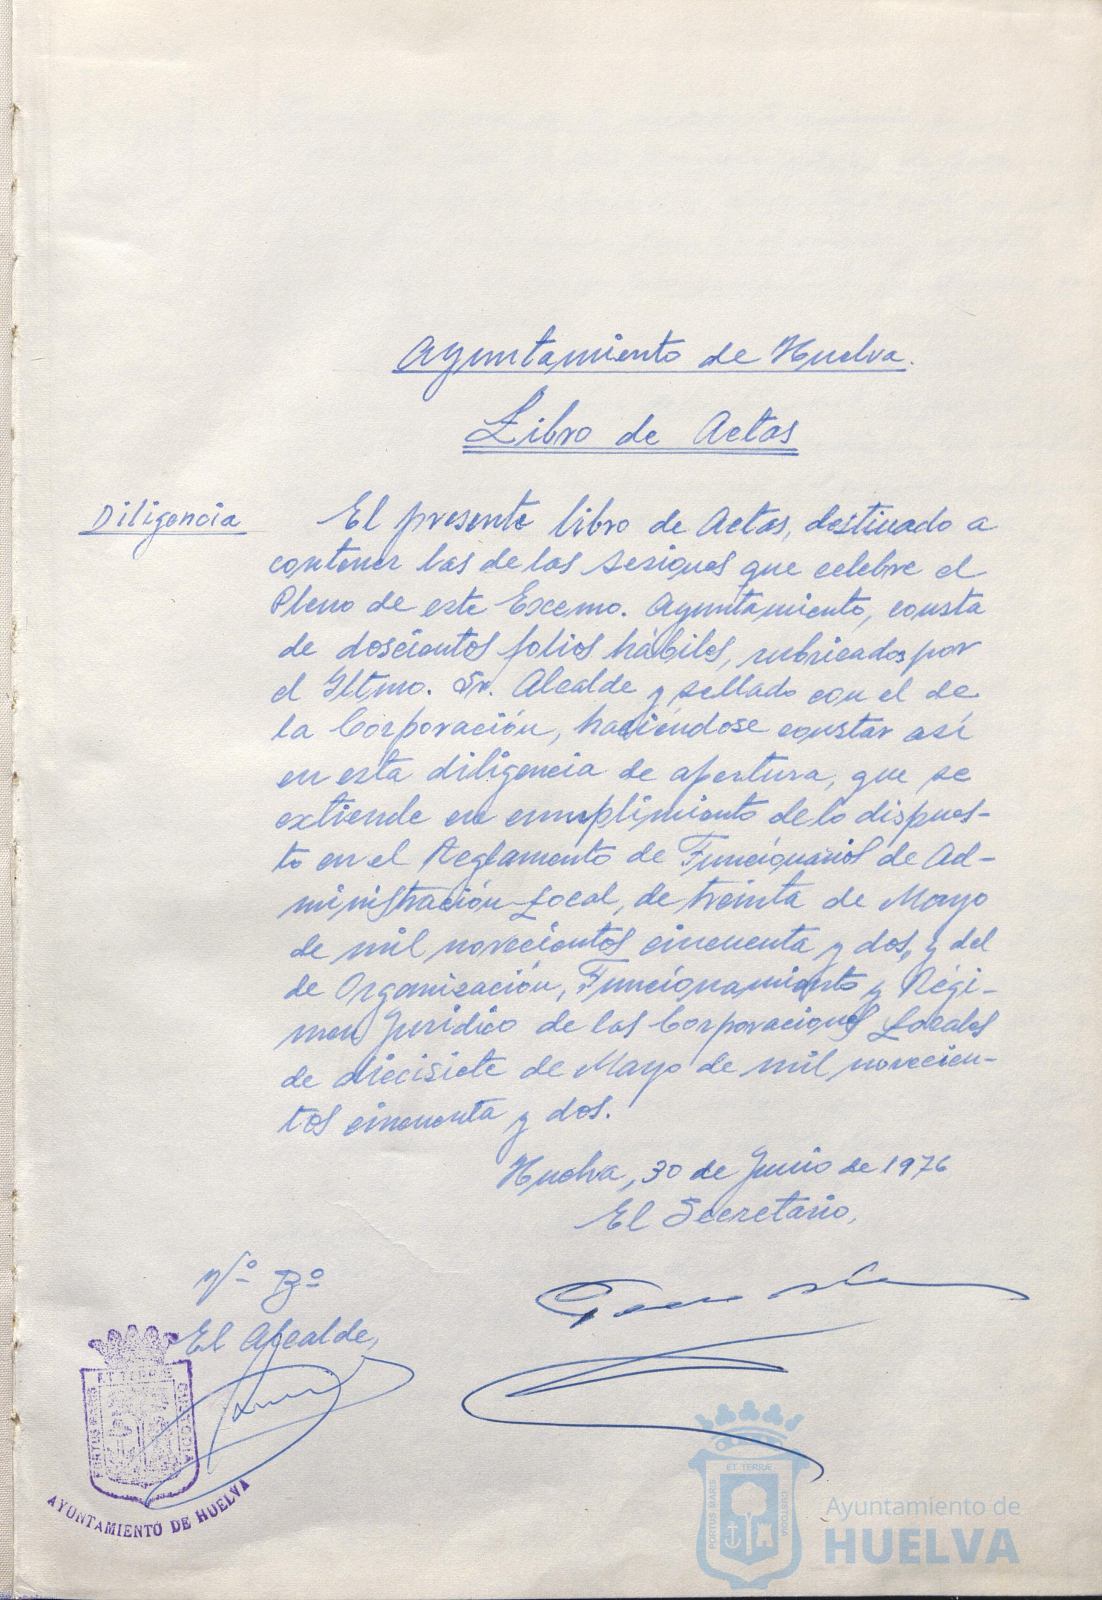 Ayuntamiento de Huelva.
Libro de Actas
Diligencia
El presente libro de Actas, destinado a
contener las de las sesiones que celebre el
Pleno de este Excmo. Ayuntamiento, consta
de doscientos folios hábiles, rubricados por
el Iltmo. Sr. Alcalde y sellado con el de
la Corporación, haciéndose constar así
en esta diligencia de apertura, que se
extiende en cumplimiento de lo dispues-
to en el Reglamento de Funcionarios de Ad-
ministración Local, de treinta de Mayo
de mil novecientos cincuenta y dos, y del
de Organización, Funcionamiento y Régi-
men Jurídico de las Corporaciones Locales
de diecisiete de Mayo de mil novecien-
tos cincuenta y dos.
Huelva, 30 de Junio de 1976
El Secretario,
Vº Bº
El Alcalde,
PORTUS MARIS
ET TERRAE
CUSTODIA
AYUNTAMIENTO DE HUELVA
PORTUS MARIS
ET TERRÆ
CUSTODIA
Ayuntamiento de
HUELVA